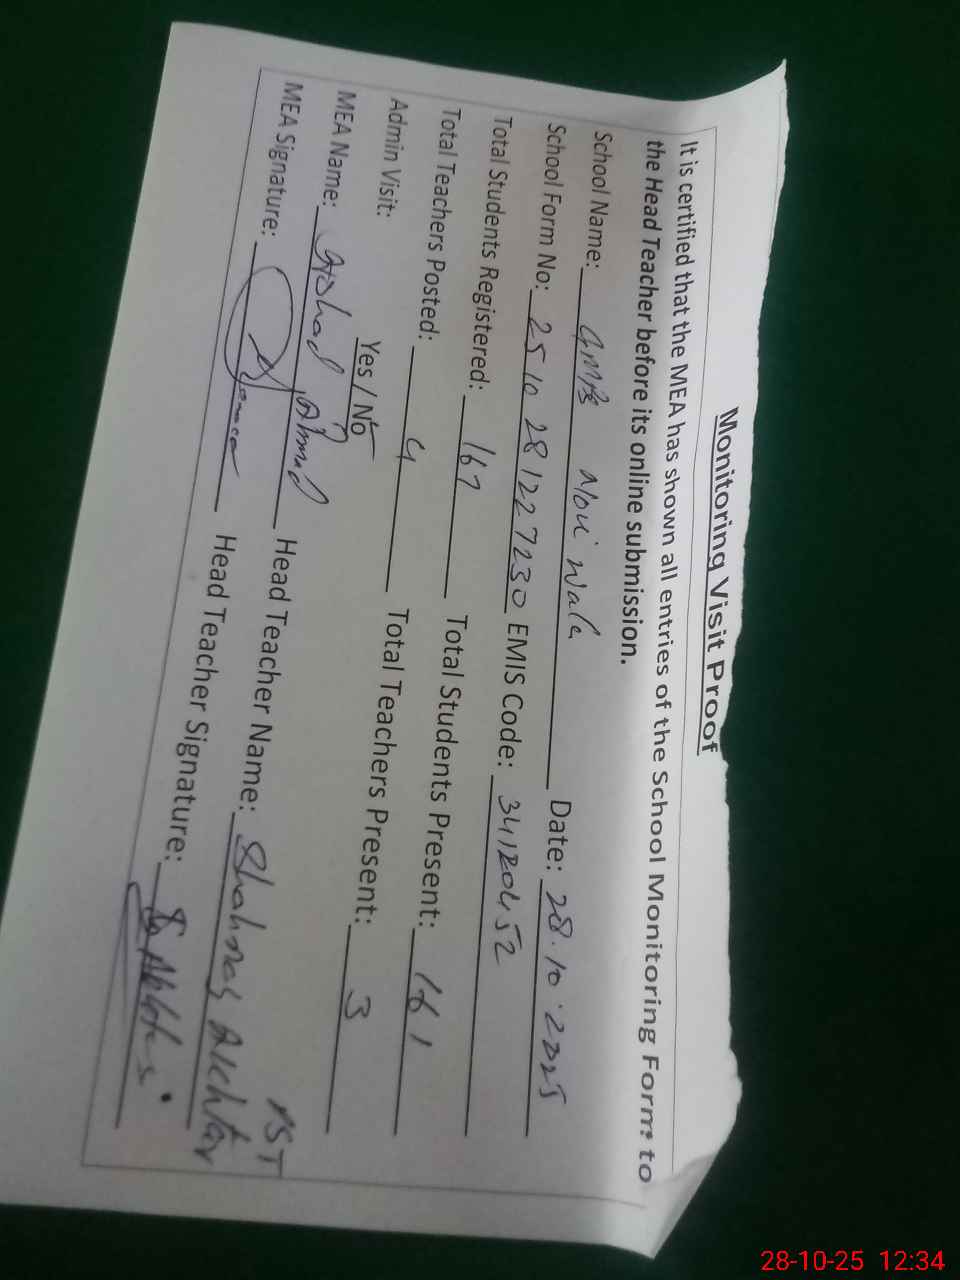 Monitoring Visit Proof
It is certified that the MEA has shown all entries of the School Monitoring Form to
the Head Teacher before its online submission.
School Name: Wala Date: 28.10.2025
School Form No: 25 10 28 1227230 EMIS Code: 34120452
Total Students Registered: 167 Total Students Present: 161
Total Teachers Posted: 4 Total Teachers Present: 3
Admin Visit: Yes / No
PST
MEA Name: Ahmad Head Teacher Name: Shahnaz Akhtar
MEA Signature: Head Teacher Signature:
28-10-25 12:34